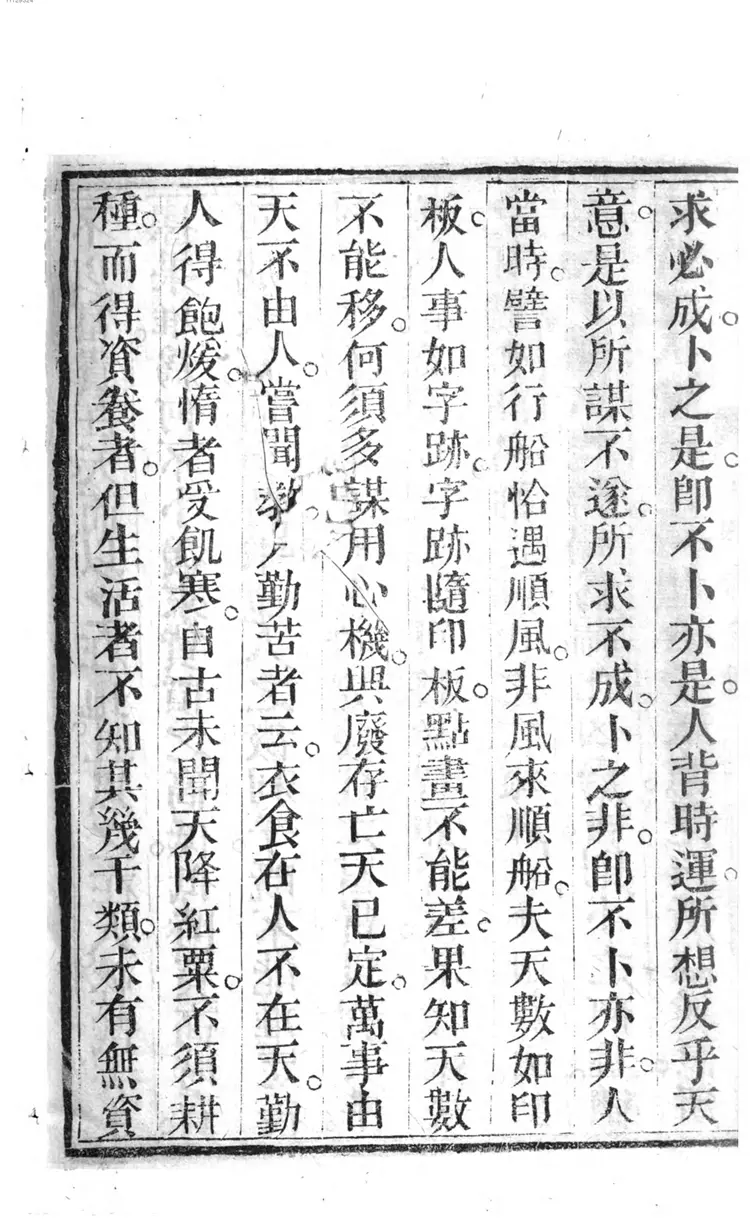 求必成。卜之是。卽不卜亦是。人背時運。所想反乎天
意。是以所謀不遂。所求不成。卜之非。卽不卜亦非。人
當時。譬如行船恰遇順風。非風來順船。夫天數如印
板。人事如字跡。字跡隨印板。點畫不能差。果知天數
不能移。何須多謀用心機。興廢存亡天已定。萬事由
天不由人。嘗聞教。勤苦者云。衣食在人不在天。勤
人得飽煖。惰者受飢寒。自古未聞天降紅粟。不須耕
種。而得資養者。但生活者不知其幾千類。未有無資